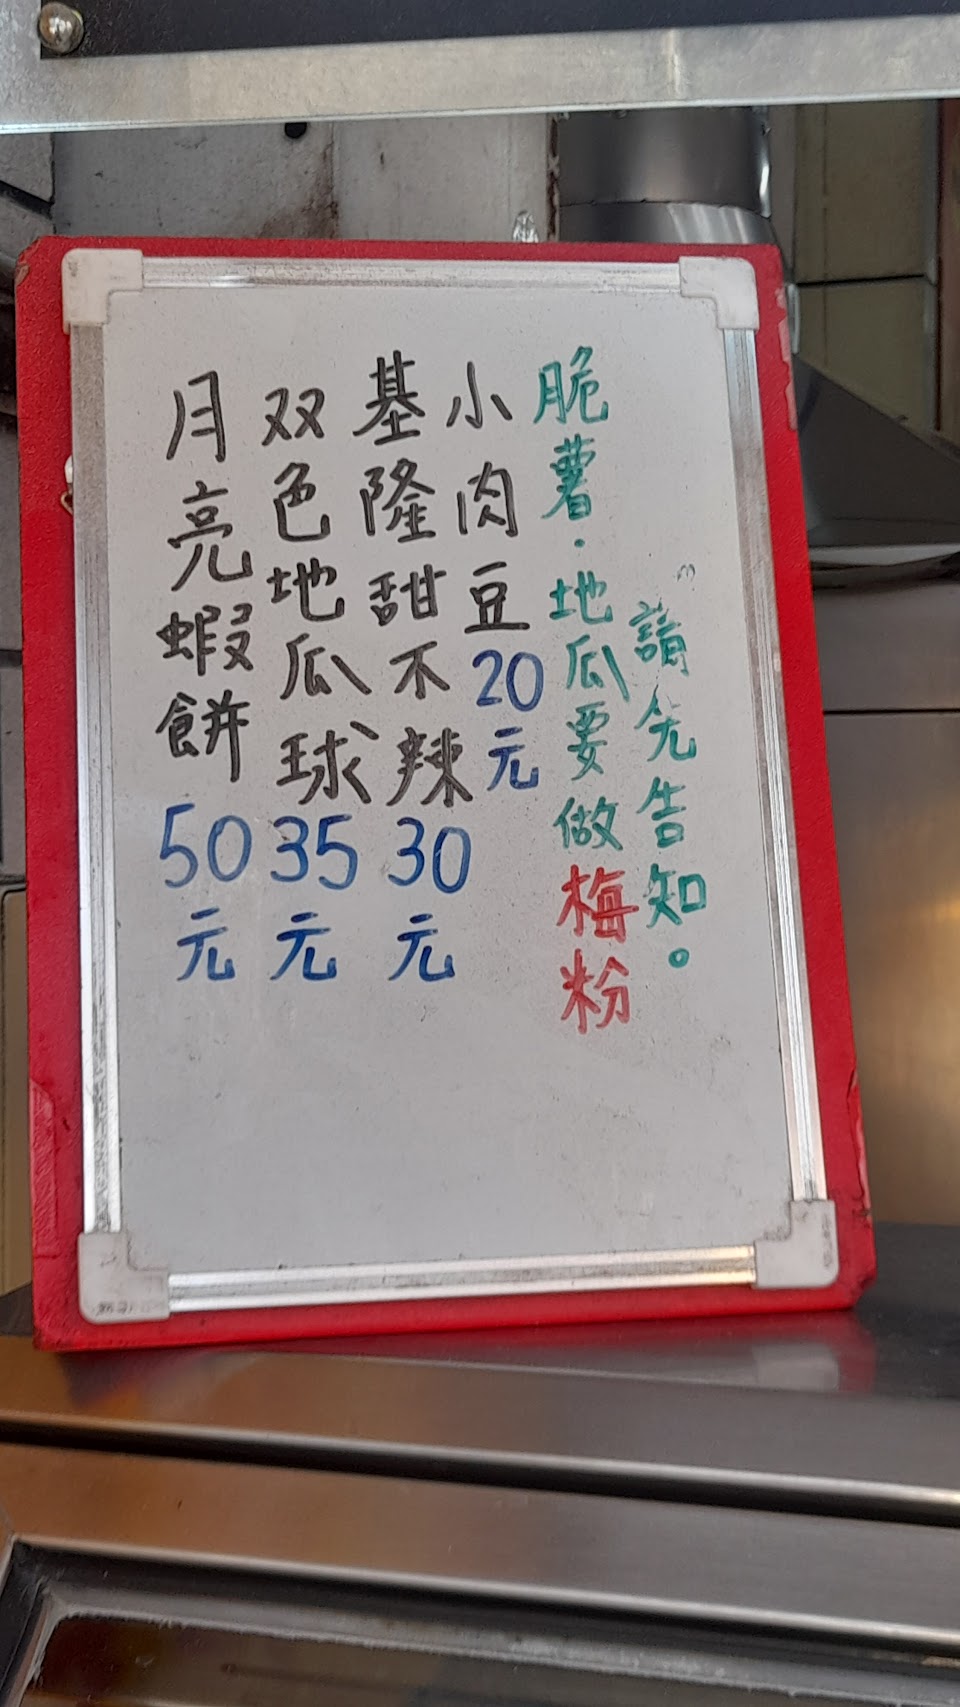 月亮蝦餅50元
双色地瓜球35元
基隆甜不辣30元
小肉豆20元
脆薯·地瓜要做梅粉
請先告知。